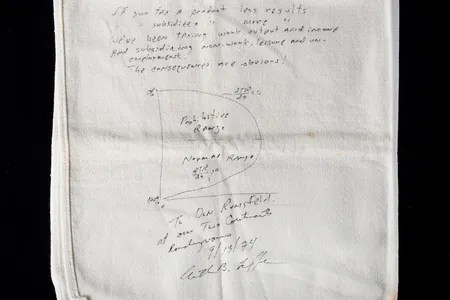 If you tax a product less results
" subsidize " " more "
We've been taxing work, output and income
and subsidizing non-work, leisure and un-
employment.
The consequences are obvious!
Prohibitive
Range
Normal Range
To Don Rumsfeld
at our Two Continents
Rendezvous
9/13/74
Arthur B. Laffer